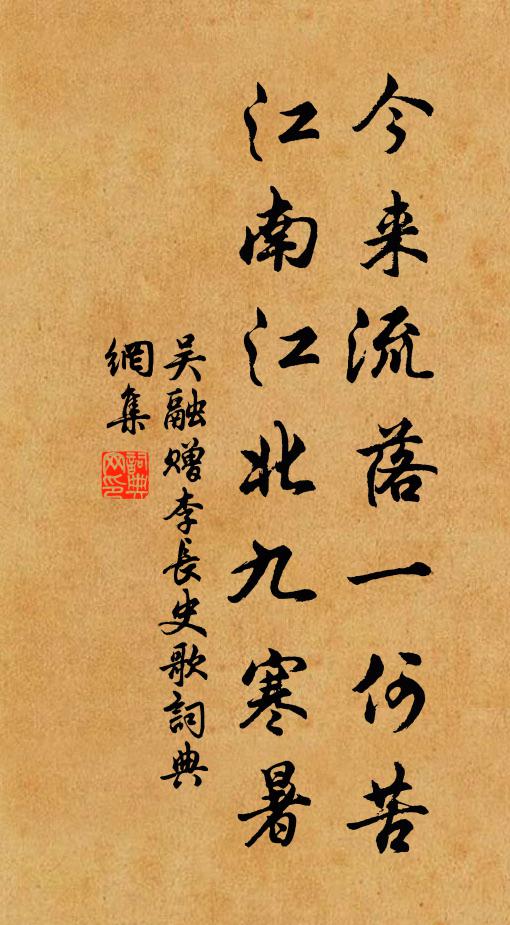 今来流落一何苦
江南江北九寒暑
吴融赠李長史歌詞典
網集
詞典网印